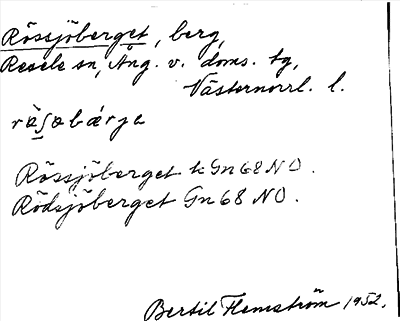 Rössjöberget, berg,
Resele sn, Ång. v. doms. tg,
Västernorrl. l.
Rössjöberget k Gn 68 NO.
Rödsjöberget Gn 68 NO.
Bertil Flemström 1952.